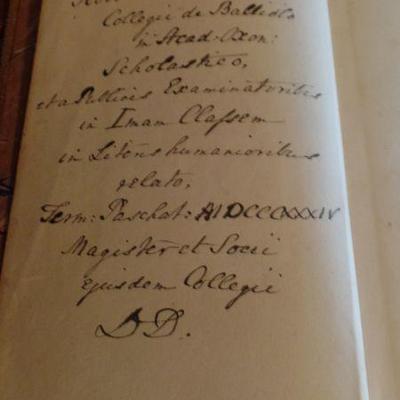 Collegii de Balliolo
in Acad: Oxon:
Scholastico,
et a Publicis Examinatoribus
in Imam Classem
in Literis humanioribus
relato,
Term: Paschat: MDCCCXXXIV
Magister et Socii
ejusdem Collegii
D D.